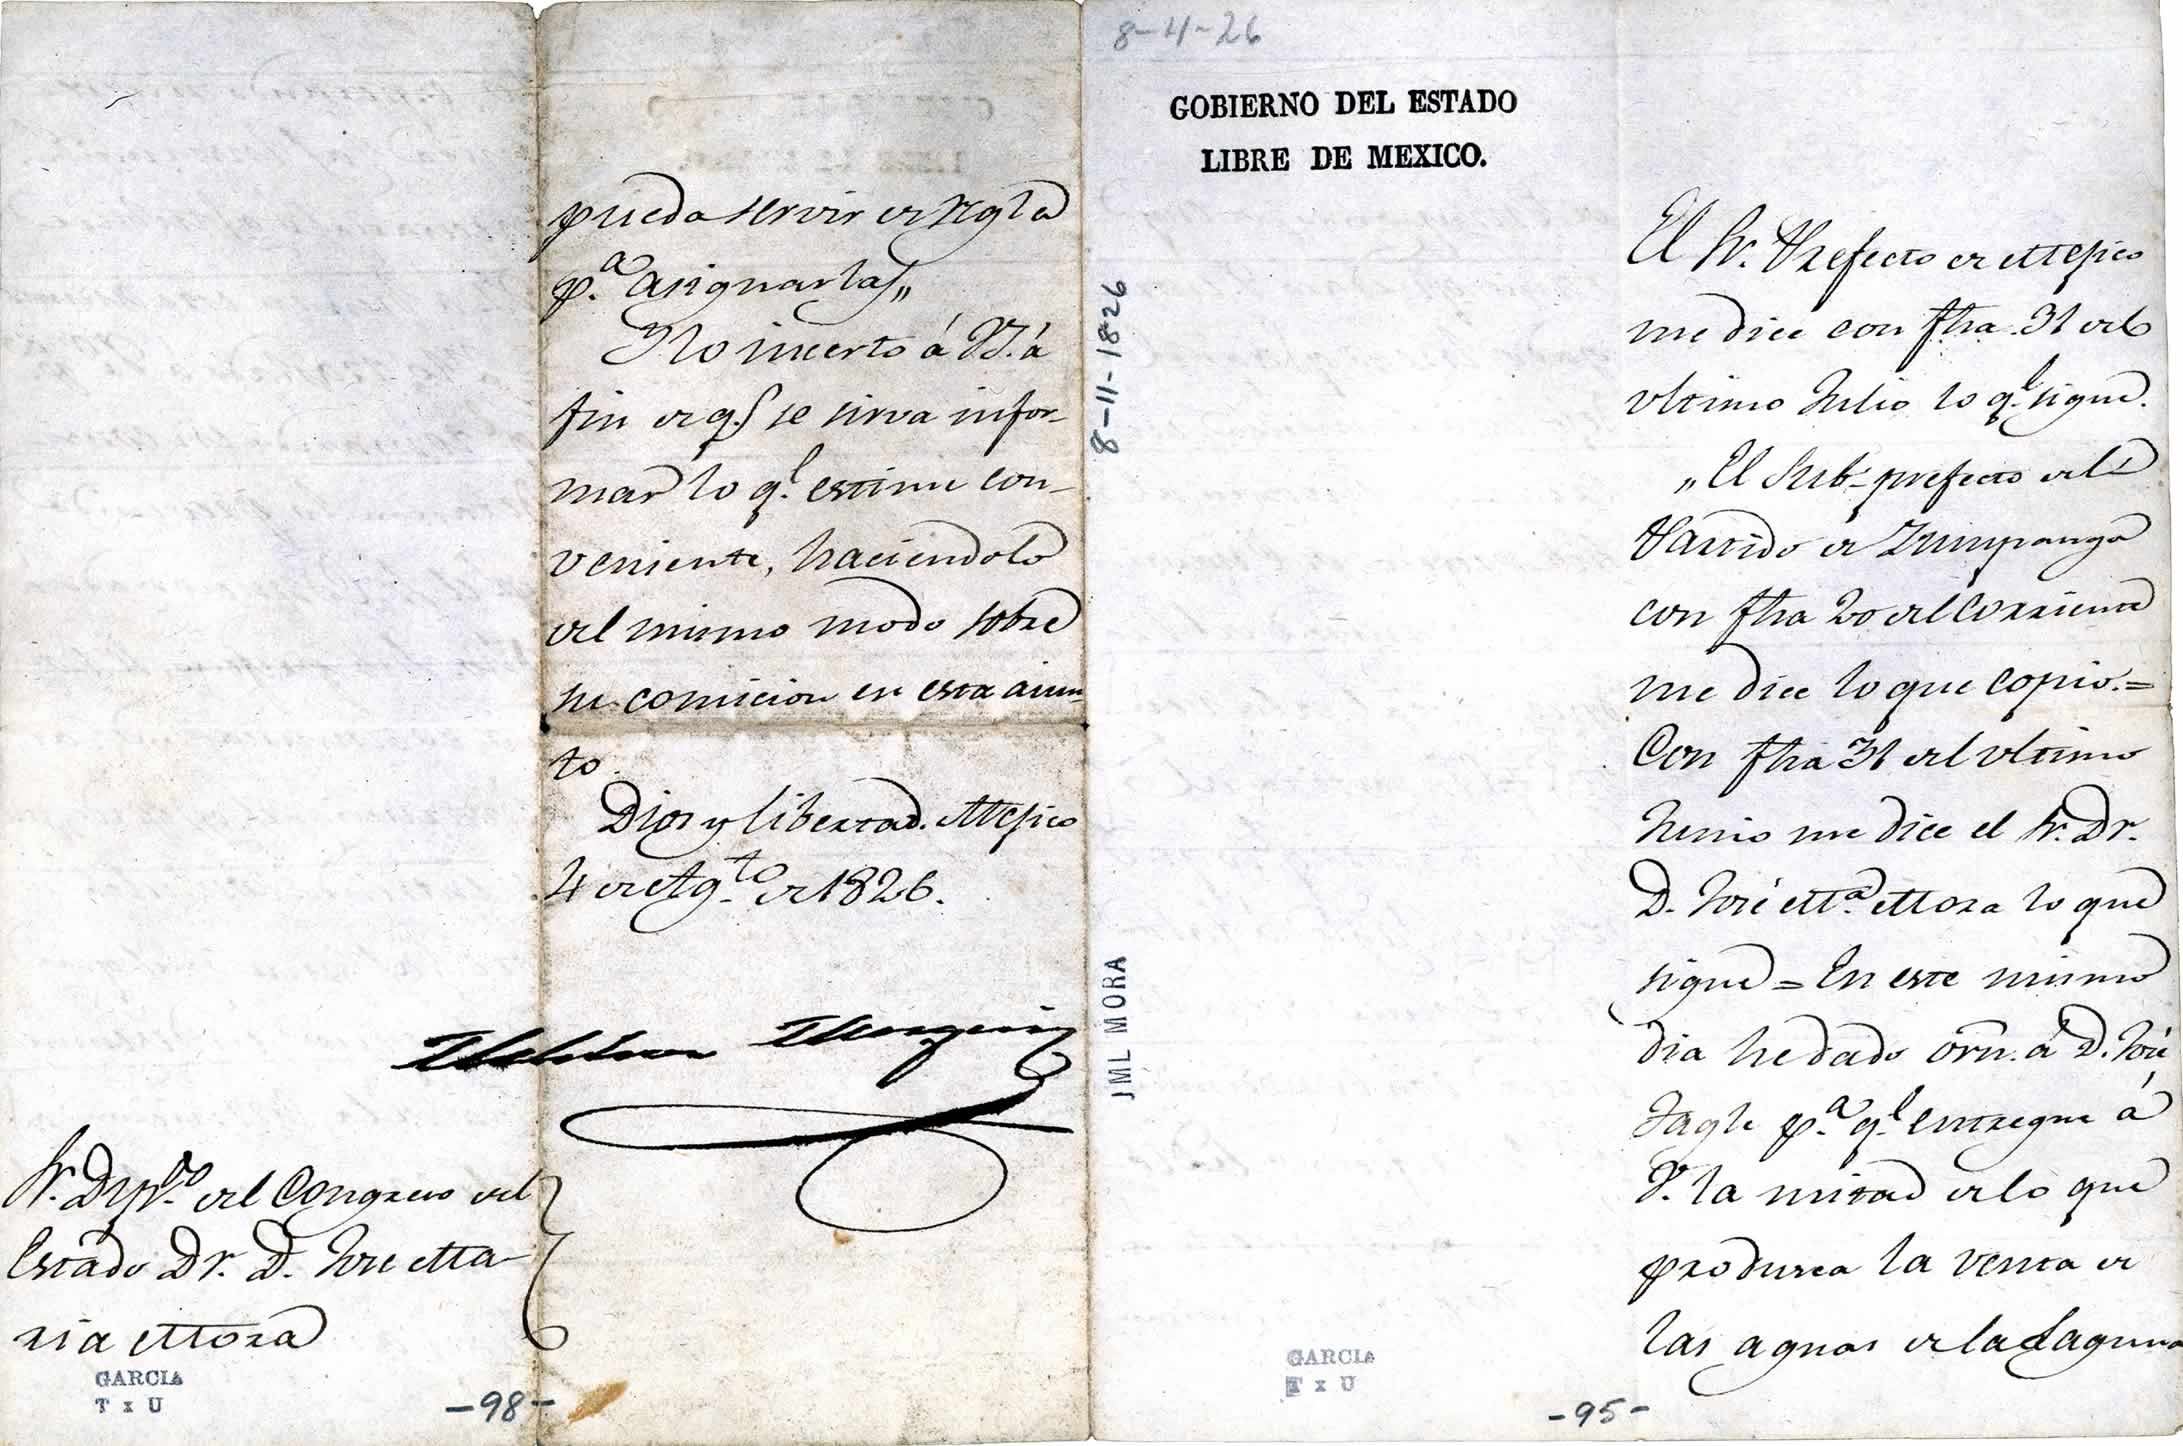 pueda servir de regla
p.ª asignarlas„
Y lo incerto á V. á
fin de q.e se sirva infor-
mar lo q.e estime con-
veniente, haciendolo
del mismo modo sobre
su comicion en este asun-
to.
Dios y libertad. Mejico
4 de Ag.to de 1826.
Melchor Muzquiz
Sr. Dip.do del Congreso del
Estado Dr. D. José Ma-
ria Mora
GARCIA
T x U
-98-
8-4-26
GOBIERNO DEL ESTADO
LIBRE DE MEXICO.
8-11-1826
JML MORA
El Sr. Prefecto de Mejico
me dice con fha. 31 del
ultimo Julio lo q.e sigue.
„El Sub-prefecto del
Partido de Zumpango
con fha 20 del corriente
me dice lo que copio.=
Con fha 31 del ultimo
Junio me dice el Sr. Dr.
D. José M.ª Mora lo que
sigue = En este mismo
dia he dado orn. á D. José
Tagle p.ª q.e entregue á
V. la mitad de lo que
produsca la venta de
las aguas de la Laguna
GARCIA
T x U
-95-